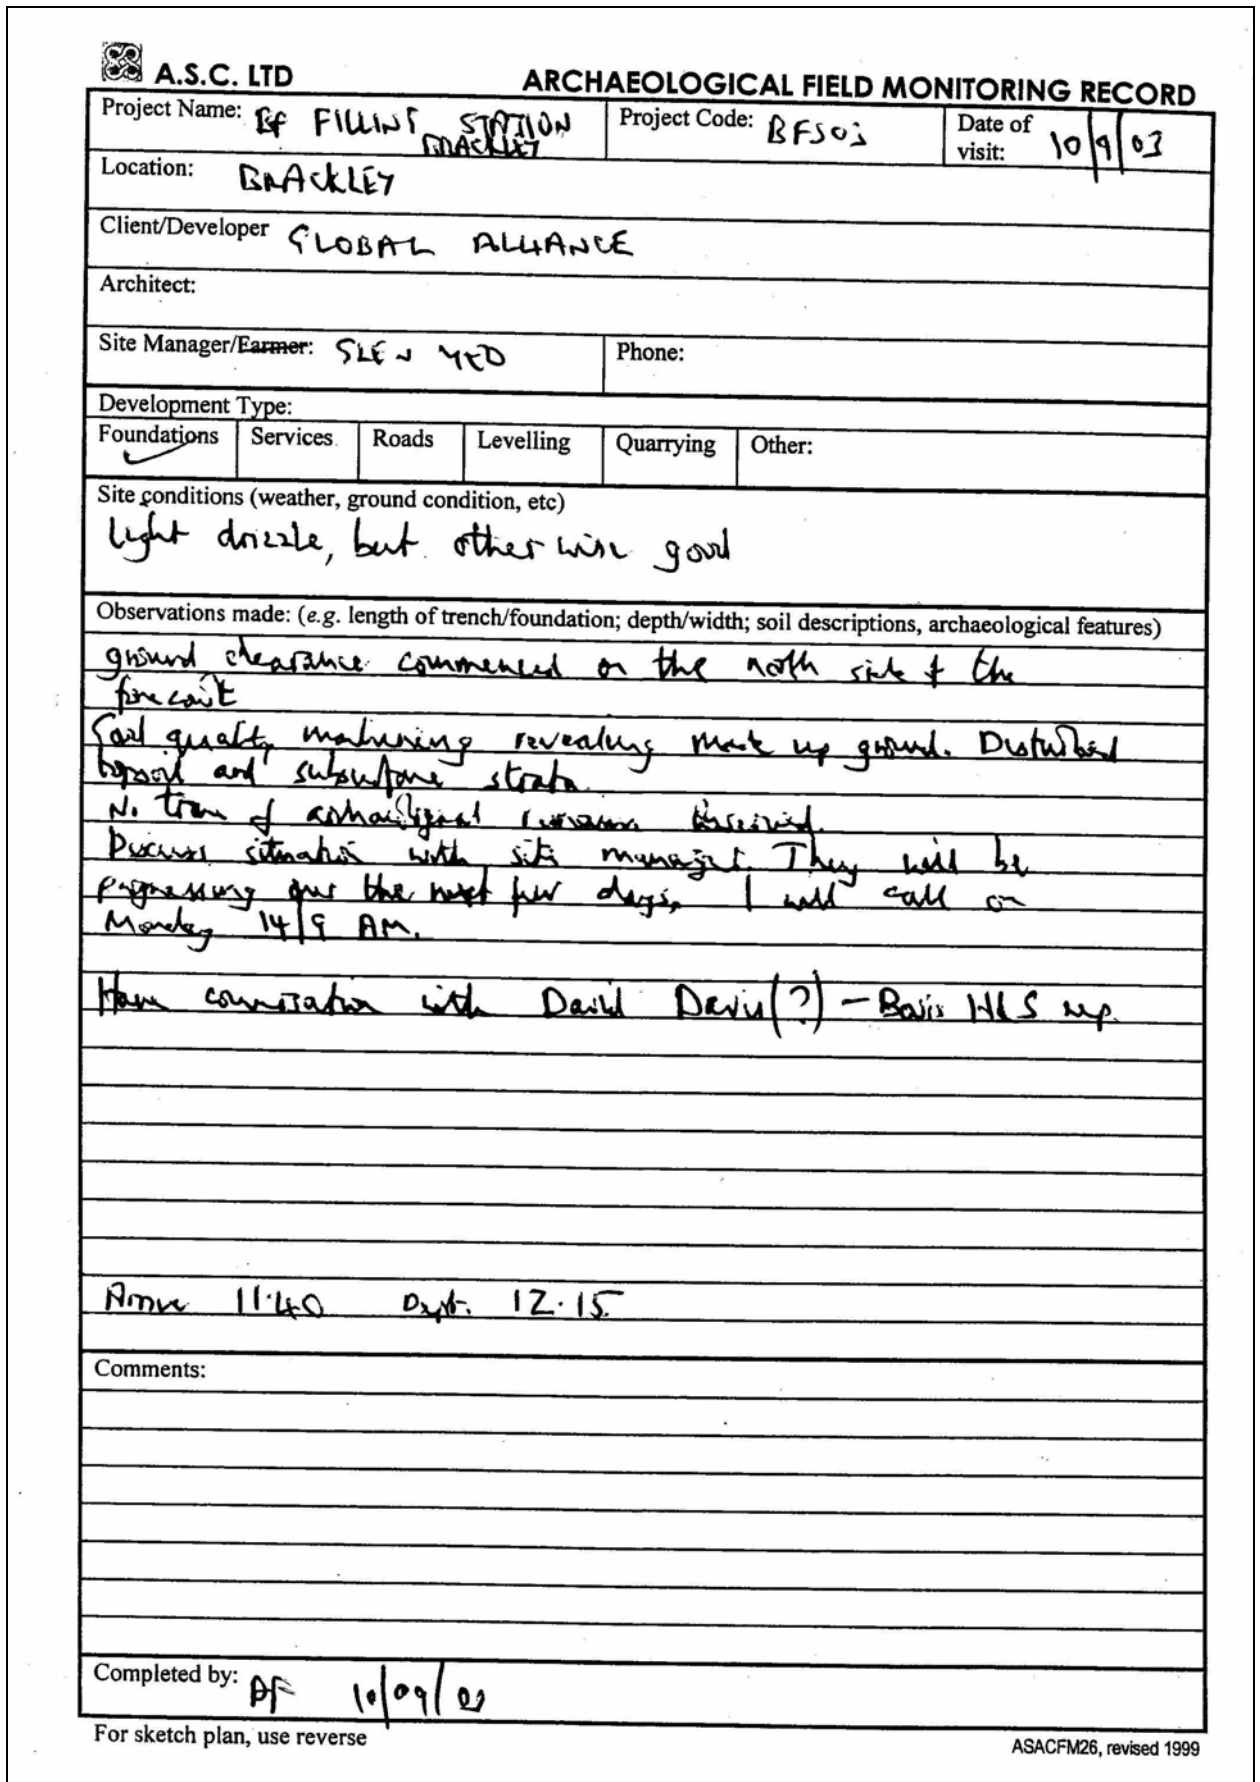 A.S.C. LTD
ARCHAEOLOGICAL FIELD MONITORING RECORD
Project Name: BP FILLING STATION
BRACKLEY
Project Code: BFS03
Date of visit: 10/9/03
Location: BRACKLEY
Client/Developer GLOBAL ALLIANCE
Architect:
Site Manager/Farmer:
Phone:
Development Type:
Foundations ✓ Services Roads Levelling Quarrying Other:
Site conditions (weather, ground condition, etc)
light drizzle, but otherwise good
Observations made: (e.g. length of trench/foundation; depth/width; soil descriptions, archaeological features)
ground clearance commenced on the north side of the
forecourt
Good quality machining revealing made up ground. Disturbed
topsoil and subsurface strata
No trace of archaeological remains observed.
Discuss situation with site manager. They will be
progressing over the next few days, I will call on
Monday 14/9 AM.
Have conversation with David Davis(?) – Bovis H&S rep.
Arrive 11.40 Dept. 12.15
Comments:
Completed by: 10/09/03
For sketch plan, use reverse
ASACFM26, revised 1999